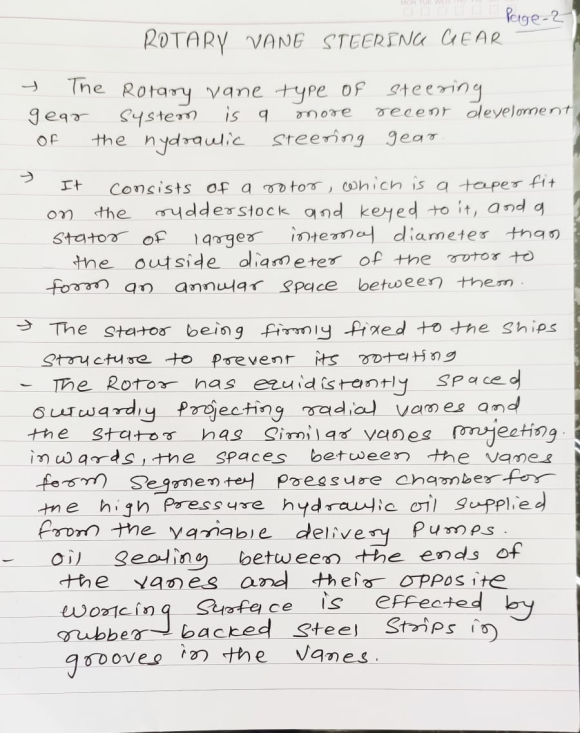 Page-2
ROTARY VANE STEERING GEAR
→ The Rotary vane type of steering
gear system is a more recent develoment
of the hydraulic steering gear
→ It consists of a rotor, which is a taper fit
on the rudderstock and keyed to it, and a
stator of larger internal diameter than
the outside diameter of the rotor to
form an annular space between them.
→ The stator being firmly fixed to the ships
structure to prevent its rotating
- The Rotor has equidistantly spaced
outwardly projecting radial vanes and
the stator has similar vanes projecting
inwards, the spaces between the vanes
form segmental pressure chamber for
the high pressure hydraulic oil supplied
from the variable delivery pumps.
- Oil sealing between the ends of
the vanes and their opposite
working surface is effected by
rubber-backed steel strips in
grooves in the vanes.